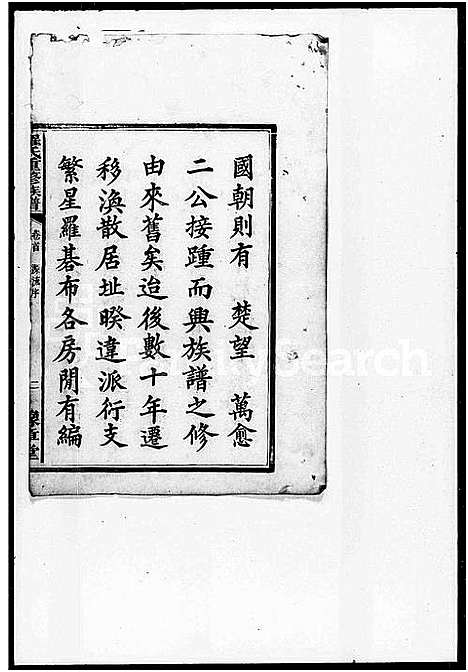 國朝則有 楚望 萬愈
二公接踵而興族譜之修
由來舊矣迨後數十年遷
移渙散居址暌違派衍支
繁星羅碁布各房閒有編
羅氏重修族譜 卷首 二 豫章堂
FamilySearch